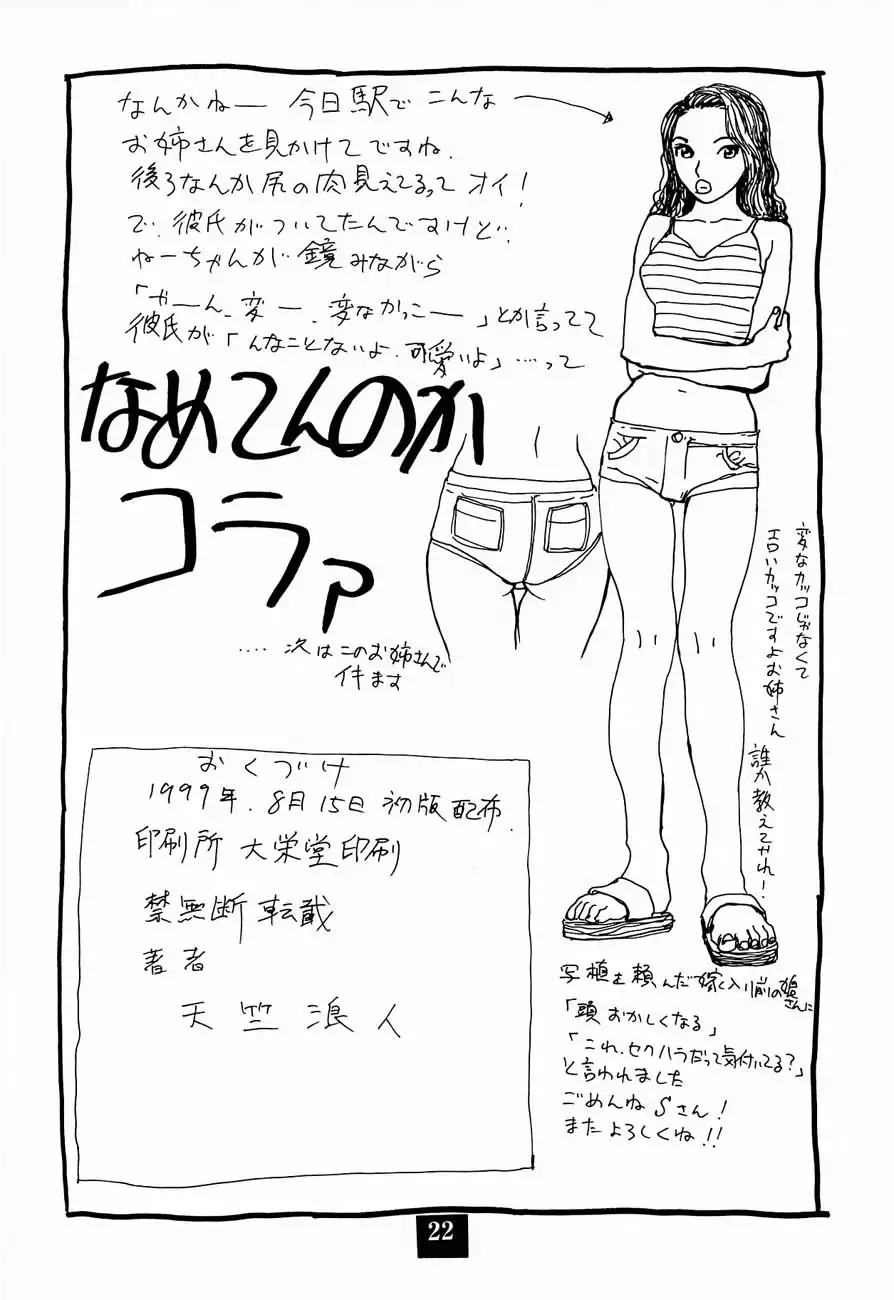 なんかねー 今日駅で こんな
お姉さんを見かけてですね.
後ろなんか尻の肉見えてるって オイ!
で.彼氏がついてたんですけど.
ねーちゃんが鏡みながら
「やーん.変ー.変なかっこー」とか言ってて
彼氏が「んなことないよ.可愛いよ」…って
なめてんのか
コラァ
....次はこのお姉さんで
イキます
変なカッコじゃなくて
エロいカッコですよお姉さん
誰か教えてやれ!
おくづけ
1999年.8月15日 初版配布.
印刷所 大栄堂印刷
禁無断転載
著者
天竺浪人
写植を頼んだ嫁入り前の娘さんに
「頭おかしくなる」
「これ.セクハラだって気付いてる?」
と言われました
ごめんね Sさん!
またよろしくね!!
22